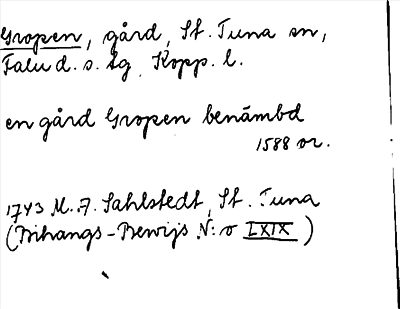 Gropen, gård, St. Tuna sn,
Falu d. s. lg, Kopp. l.
en gård Gropen benämbd
1588 or.
1743 M. A. Sahlstedt, St. Tuna
(Bihangs-Bewijs N:o LXIX)